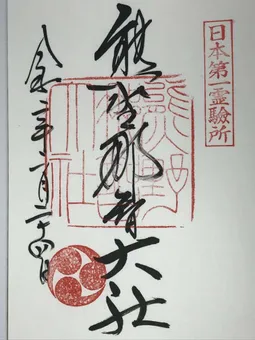 日本第一霊験所
熊野那智大社
令和二年六月二十四日